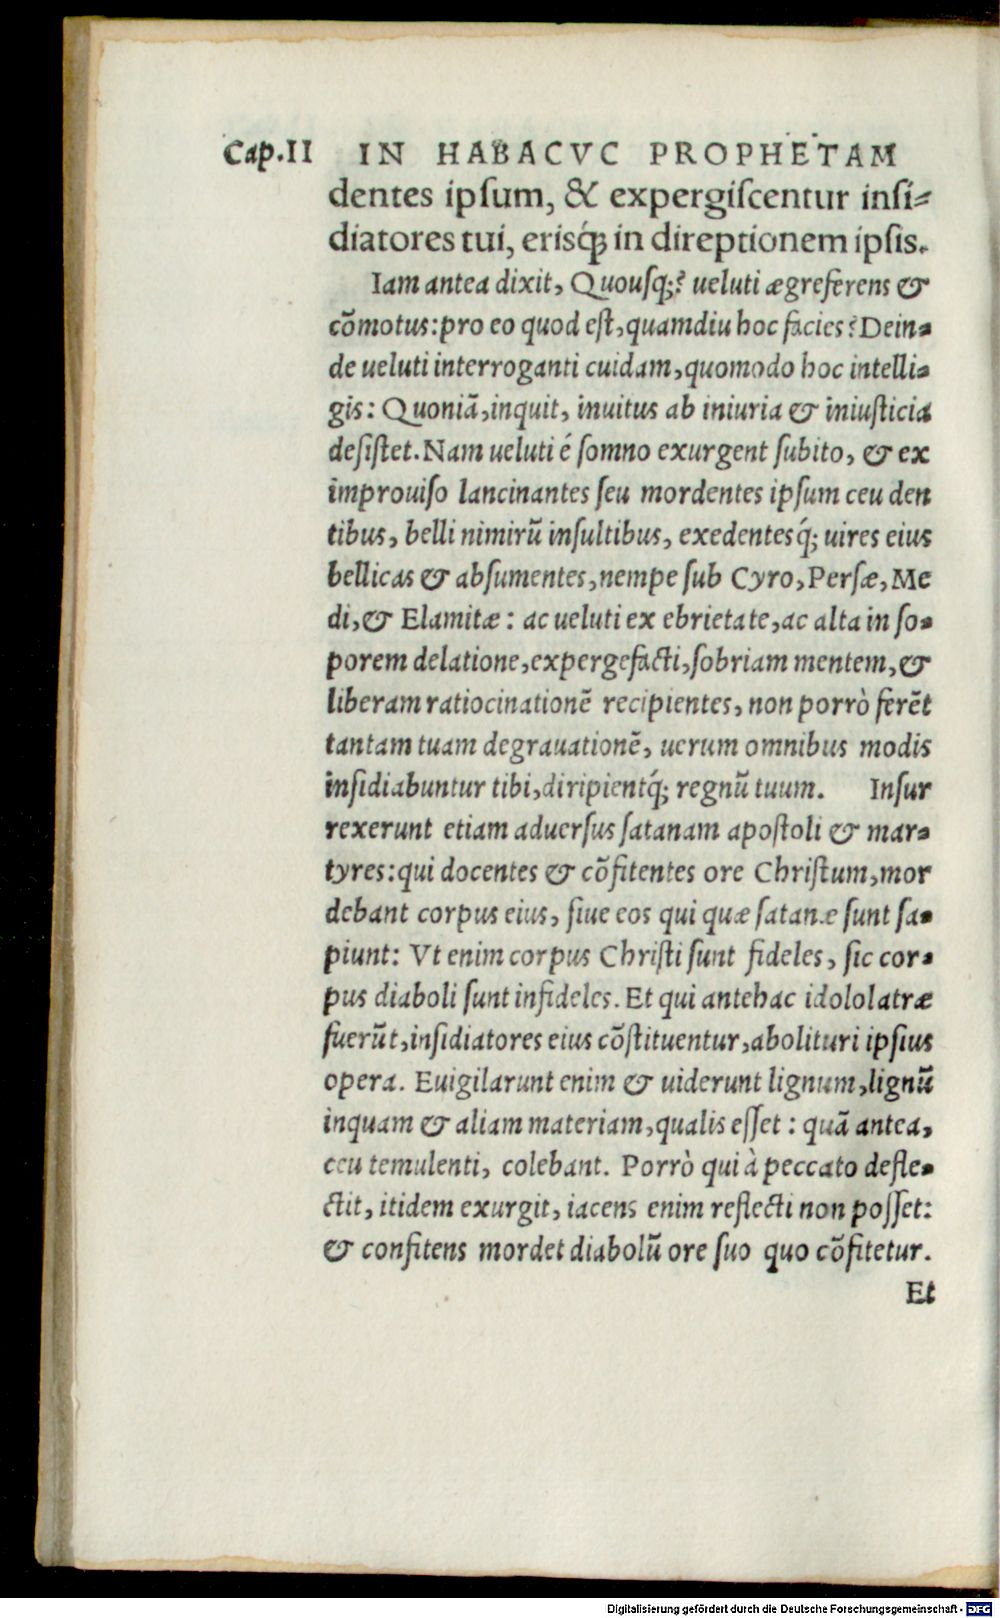 Cap.II IN HABACVC PROPHETAM
dentes ipſum, & expergiſcentur inſi-
diatores tui, erisq́; in direptionem ipſis.
Iam antea dixit, Quouſq;? ueluti ægreferens &
cõmotus: pro eo quod eſt, quamdiu hoc facies? Dein-
de ueluti interroganti cuidam, quomodo hoc intelli-
gis: Quoniã, inquit, inuitus ab iniuria & iniuſticia
deſiſtet. Nam ueluti é ſomno exurgent ſubito, & ex
improuiſo lancinantes ſeu mordentes ipſum ceu den
tibus, belli nimirũ inſultibus, exedentesq́; uires eius
bellicas & abſumentes, nempe ſub Cyro, Perſæ, Me
di, & Elamitæ: ac ueluti ex ebrietate, ac alta in ſo-
porem delatione, expergefacti, ſobriam mentem, &
liberam ratiocinationẽ recipientes, non porrò ferẽt
tantam tuam degrauationẽ, uerum omnibus modis
inſidiabuntur tibi, diripientq́; regnũ tuum. Inſur
rexerunt etiam aduerſus ſatanam apoſtoli & mar-
tyres: qui docentes & cõfitentes ore Chriſtum, mor
debant corpus eius, ſiue eos qui quæ ſatanæ ſunt ſa-
piunt: Vt enim corpus Chriſti ſunt fideles, ſic cor-
pus diaboli ſunt infideles. Et qui antehac idololatræ
fuerũt, inſidiatores eius cõſtituentur, abolituri ipſius
opera. Euigilarunt enim & uiderunt lignum, lignũ
inquam & aliam materiam, qualis eſſet: quã antea,
ceu temulenti, colebant. Porrò qui à peccato defle-
ctit, itidem exurgit, iacens enim reflecti non poſſet:
& confitens mordet diabolũ ore ſuo quo cõfitetur.
Et
Digitalisierung gefördert durch die Deutsche Forschungsgemeinschaft - DFG